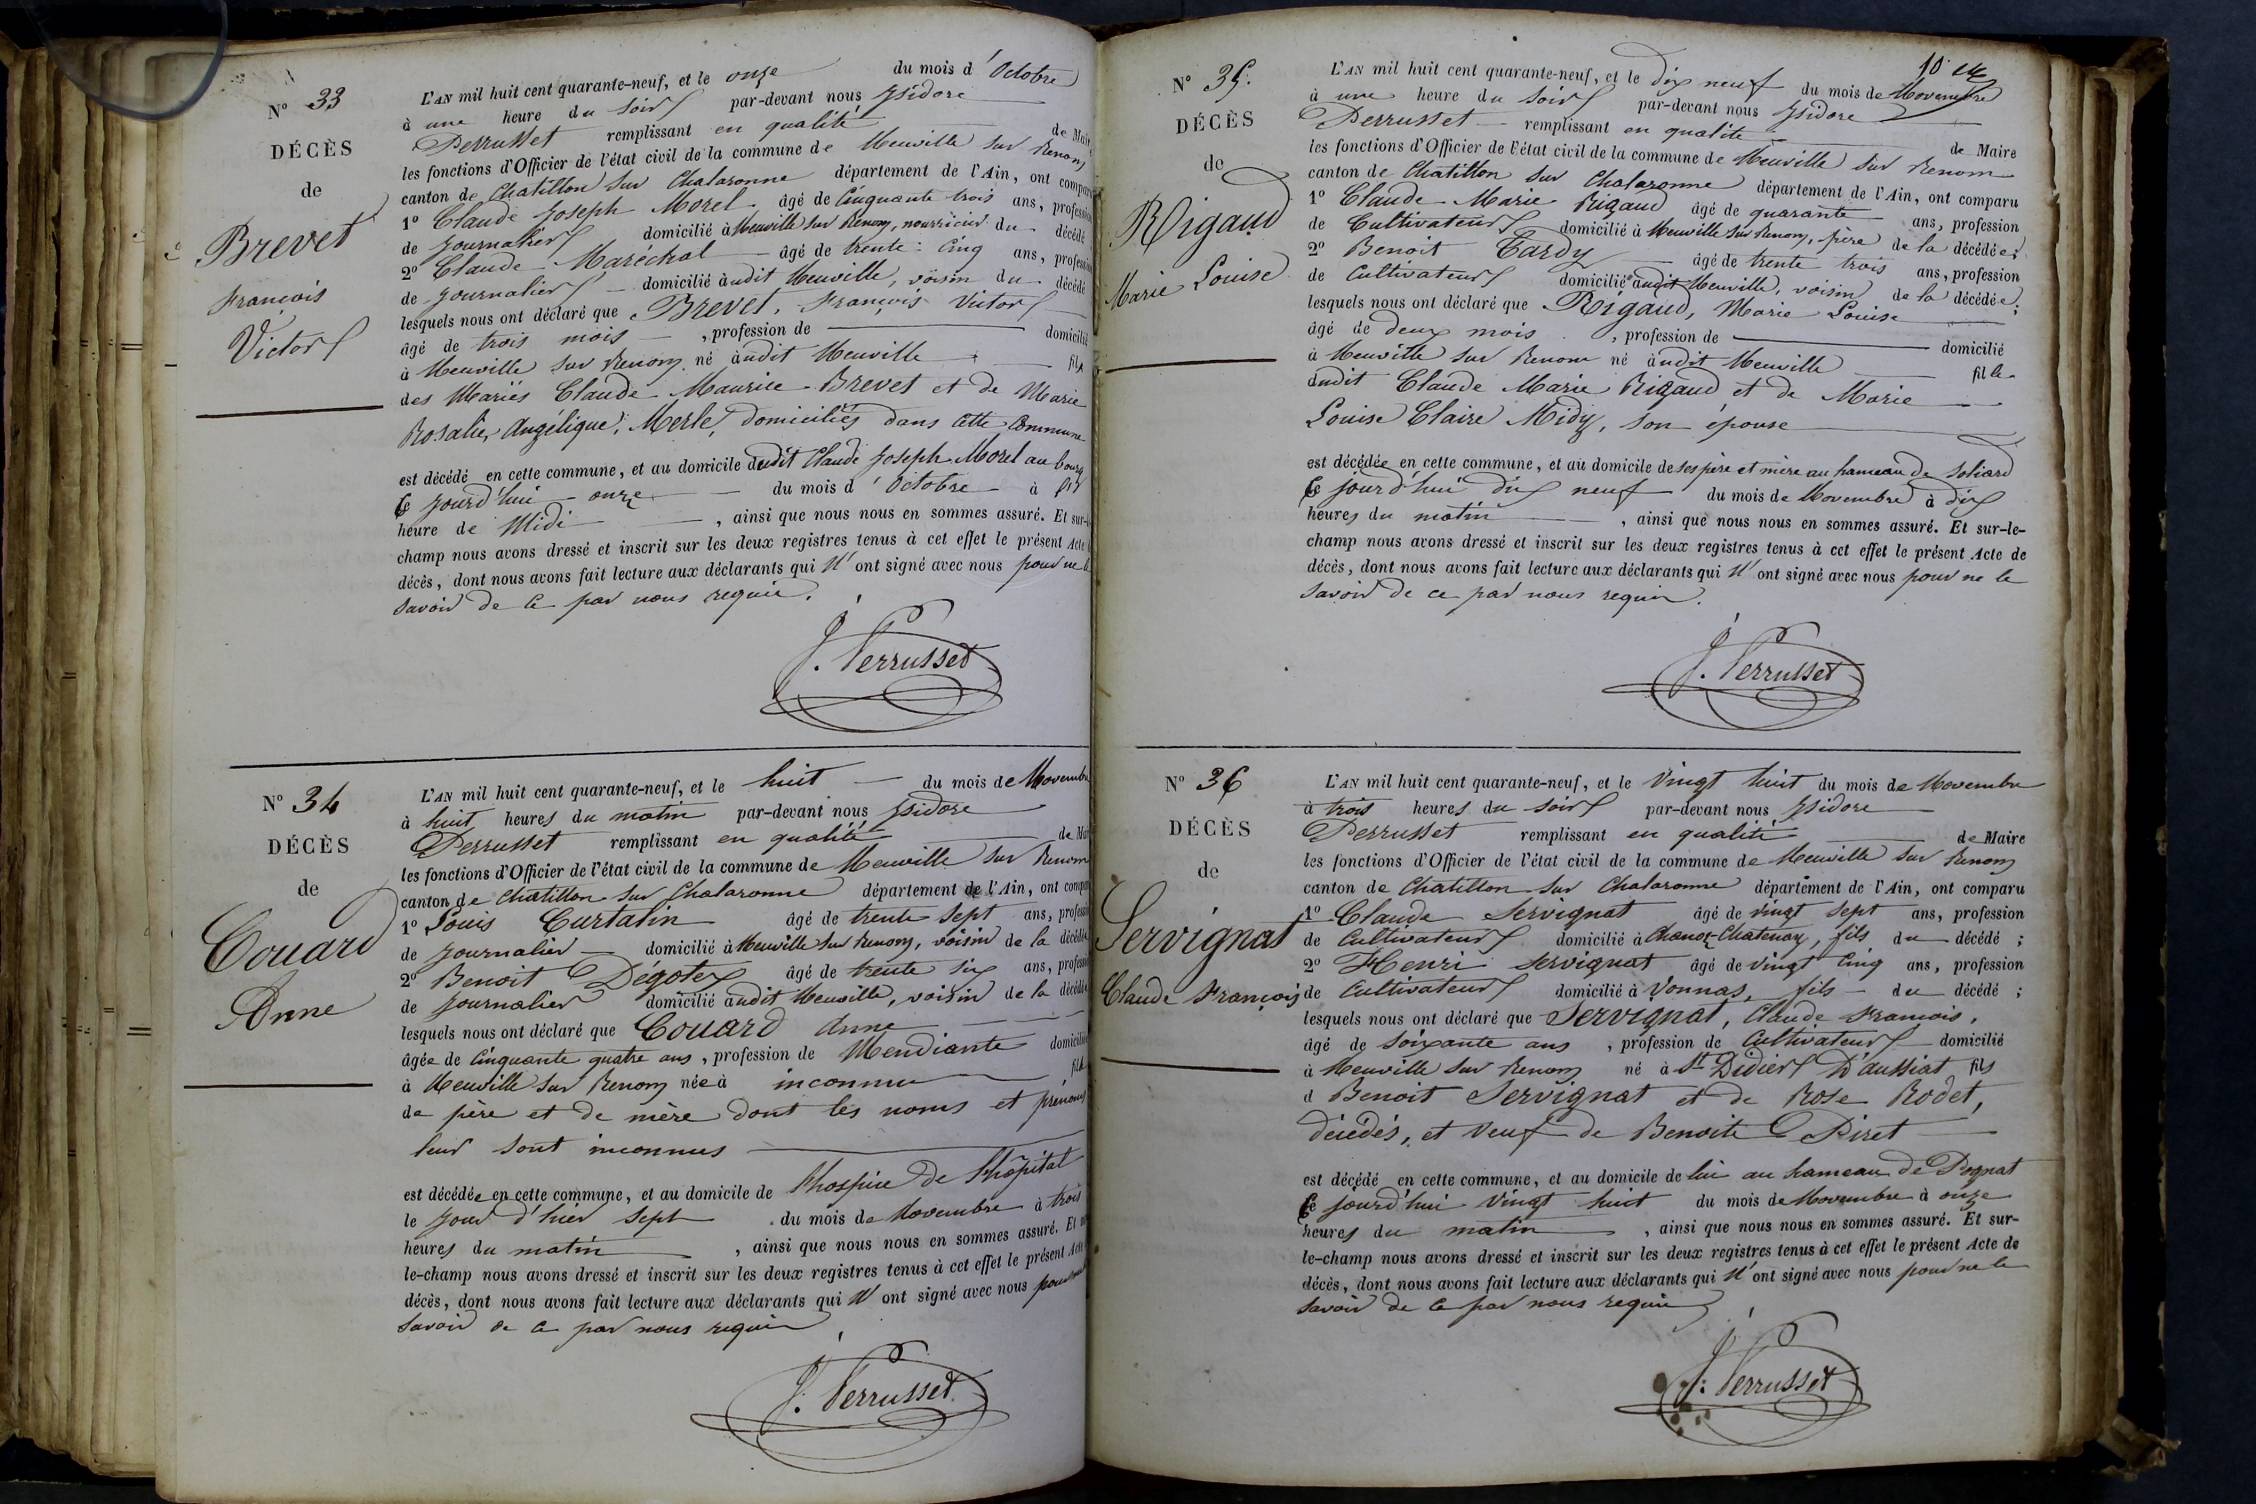 N° 33
DÉCÈS
de
Brevet
François
Victor
L'AN mil huit cent quarante-neuf, et le onze du mois d'Octobre
à une heure du soir par-devant nous Ysidore
Perrusset remplissant en qualité de Maire
les fonctions d'Officier de l'état civil de la commune de Neuville sur Renom
canton de Chatillon sur Chalaronne département de l'Ain, ont comparu
1° Claude Joseph Morel âgé de Cinquante trois ans, profession
de journalier domicilié à Neuville sur Renom, nourricier du décédé
2° Claude Maréchal âgé de trente-cinq ans, profession
de journalier domicilié audit Neuville, voisin du décédé
lesquels nous ont déclaré que Brevet, François Victor
âgé de trois mois, profession de domicilié
à Neuville sur Renom né audit Neuville fils
des Mariés Claude Maurice Brevet et de Marie
Rosalie, Angélique, Merle, domiciliés dans cette Commune
est décédé en cette commune, et au domicile dudit Claude Joseph Morel au bourg
Ce jourd'hui onze du mois d'Octobre à
heure de Midi, ainsi que nous nous en sommes assuré. Et sur-le-
champ nous avons dressé et inscrit sur les deux registres tenus à cet effet le présent Acte
décès, dont nous avons fait lecture aux déclarants qui N'ont signé avec nous pour ne le
savoir de ce par nous requis.
J. Perrusset
N° 34
DÉCÈS
de
Couard
Anne
L'AN mil huit cent quarante-neuf, et le huit du mois de Novembre
à huit heures du matin par-devant nous Ysidore
Perrusset remplissant en qualité de Maire
les fonctions d'Officier de l'état civil de la commune de Neuville sur Renom
canton de Chatillon sur Chalaronne département de l'Ain, ont comparu
1° Louis Curtalin âgé de trente sept ans, profession
de journalier domicilié à Neuville sur Renom, voisin de la décédée
2° Benoit Degotex âgé de trente six ans, profession
de journalier domicilié audit Neuville, voisin de la décédée
lesquels nous ont déclaré que Couard Anne
âgée de Cinquante quatre ans, profession de Mendiante domiciliée
à Neuville sur Renom née à inconnu fille
de père et de mère dont les noms et prénoms
leur sont inconnus
est décédée en cette commune, et au domicile de l'hospice de l'hôpital
le jour d'hier sept du mois de Novembre à trois
heures du matin, ainsi que nous nous en sommes assuré. Et sur
le-champ nous avons dressé et inscrit sur les deux registres tenus à cet effet le présent Acte
décès, dont nous avons fait lecture aux déclarants qui N'ont signé avec nous pour ne le
savoir de ce par nous requis
J. Perrusset
10
N° 35.
DÉCÈS
de
Rigaud
Marie Louise
L'AN mil huit cent quarante-neuf, et le dix neuf du mois de Novembre
à une heure du soir par-devant nous Ysidore
Perrusset remplissant en qualité de Maire
les fonctions d'Officier de l'état civil de la commune de Neuville sur Renom
canton de Chatillon sur Chalaronne département de l'Ain, ont comparu
1° Claude Marie Rigaud âgé de quarante ans, profession
de Cultivateur domicilié à Neuville sur Renom, père de la décédée;
2° Benoit Tardy âgé de trente trois ans, profession
de Cultivateur domicilié audit Neuville, voisin de la décédée;
lesquels nous ont déclaré que Rigaud, Marie Louise
âgé de deux mois, profession de domicilié
à Neuville sur Renom né audit Neuville fille
dudit Claude Marie Rigaud et de Marie
Louise Claire Midy, son épouse
est décédée en cette commune, et au domicile de ses père et mère au hameau de Soliard
Ce jourd'hui dix neuf du mois de Novembre à dix
heures du matin, ainsi que nous nous en sommes assuré. Et sur-le-
champ nous avons dressé et inscrit sur les deux registres tenus à cet effet le présent Acte de
décès, dont nous avons fait lecture aux déclarants qui N'ont signé avec nous pour ne le
savoir de ce par nous requis.
J. Perrusset
N° 36
DÉCÈS
de
Servignat
Claude François
L'AN mil huit cent quarante-neuf, et le Vingt huit du mois de Novembre
à trois heures du soir par-devant nous Ysidore
Perrusset remplissant en qualité de Maire
les fonctions d'Officier de l'état civil de la commune de Neuville sur Renom
canton de Chatillon sur Chalaronne département de l'Ain, ont comparu
1° Claude Servignat âgé de vingt sept ans, profession
de Cultivateur domicilié à Chanoz-Chatenay, fils du décédé;
2° Henri Servignat âgé de vingt Cinq ans, profession
de Cultivateur domicilié à Vonnas, fils du décédé;
lesquels nous ont déclaré que Servignat, Claude François,
âgé de soixante ans, profession de Cultivateur domicilié
à Neuville sur Renom né à St Didier D'aussiat fils
d Benoit Servignat et de Rose Rodet,
décédés, et veuf de Benoite Piret
est décédé en cette commune, et au domicile de lui au hameau de Pognat
Ce jourd'hui Vingt huit du mois de Novembre à onze
heures du matin, ainsi que nous nous en sommes assuré. Et sur-
le-champ nous avons dressé et inscrit sur les deux registres tenus à cet effet le présent Acte de
décès, dont nous avons fait lecture aux déclarants qui N'ont signé avec nous pour ne le
savoir de ce par nous requis
J. Perrusset